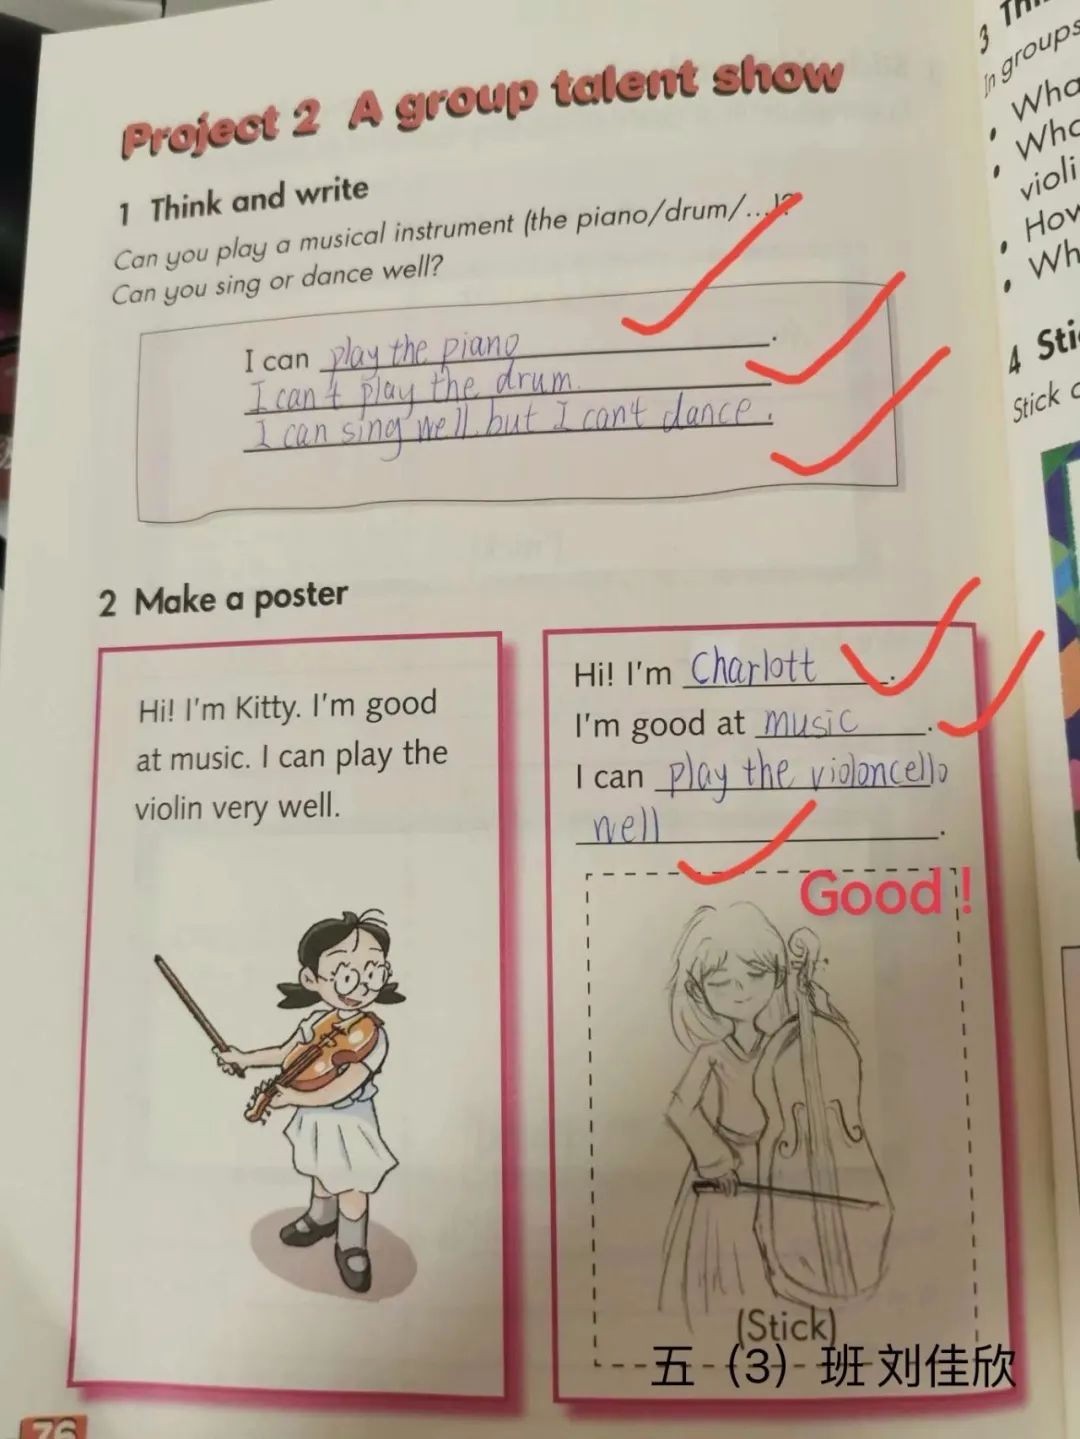 Project 2 A group talent show
1 Think and write
Can you play a musical instrument (the piano/drum/...)?
Can you sing or dance well?
I can play the piano.
I can't play the drum.
I can sing well but I can't dance.
2 Make a poster
Hi! I'm Kitty. I'm good
at music. I can play the
violin very well.
Hi! I'm Charlott.
I'm good at music.
I can play the violoncello
well.
Good!
(Stick)
五（3）班 刘佳欣
76
3
In groups
• Wh
• Wh
violi
• How
• Wh
4 Sti
Stick